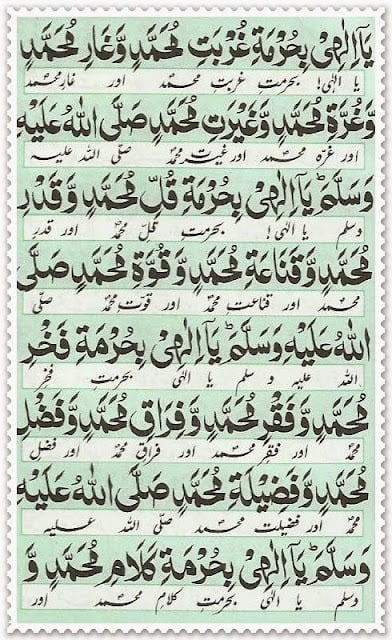 يَآ اِلٰهِيْ بِحُرْمَةِ غُرْبَتِ مُحَمَّدٍ وَّغَارِ مُحَمَّدٍ
یا الٰہی! بحرمتِ غربتِ محمد اور غارِ محمد
وَّغُرَّةِ مُحَمَّدٍ وَّغَيْرَتِ مُحَمَّدٍ صَلَّى اللهُ عَلَيْهِ
اور غرہ محمد اور غیرت محمد صلی اللہ علیہ
وَسَلَّمَ ؕ يَآ اِلٰهِيْ بِحُرْمَةِ قُلِّ مُحَمَّدٍ وَّقَدْرِ
وسلم یا الٰہی! بحرمتِ قلِ محمد اور قدرِ
مُحَمَّدٍ وَّقَنَاعَةِ مُحَمَّدٍ وَّقُوَّةِ مُحَمَّدٍ صَلَّى
محمد اور قناعت محمد اور قوت محمد صلی
اللهُ عَلَيْهِ وَسَلَّمَ ؕ يَآ اِلٰهِيْ بِحُرْمَةِ فَخْرِ
اللہ علیہ وسلم یا الٰہی بحرمت فخر
مُحَمَّدٍ وَّفَقْرِ مُحَمَّدٍ وَّفِرَاقِ مُحَمَّدٍ وَّفَضْلِ
محمد اور فقر محمد اور فراق محمد اور فضل
مُحَمَّدٍ وَّفَضِيْلَةِ مُحَمَّدٍ صَلَّى اللهُ عَلَيْهِ
محمد اور فضیلت محمد صلی اللہ علیہ
وَسَلَّمَ ؕ يَآ اِلٰهِيْ بِحُرْمَةِ كَلَامِ مُحَمَّدٍ وَّ
وسلم یا الٰہی بحرمتِ کلام محمد اور